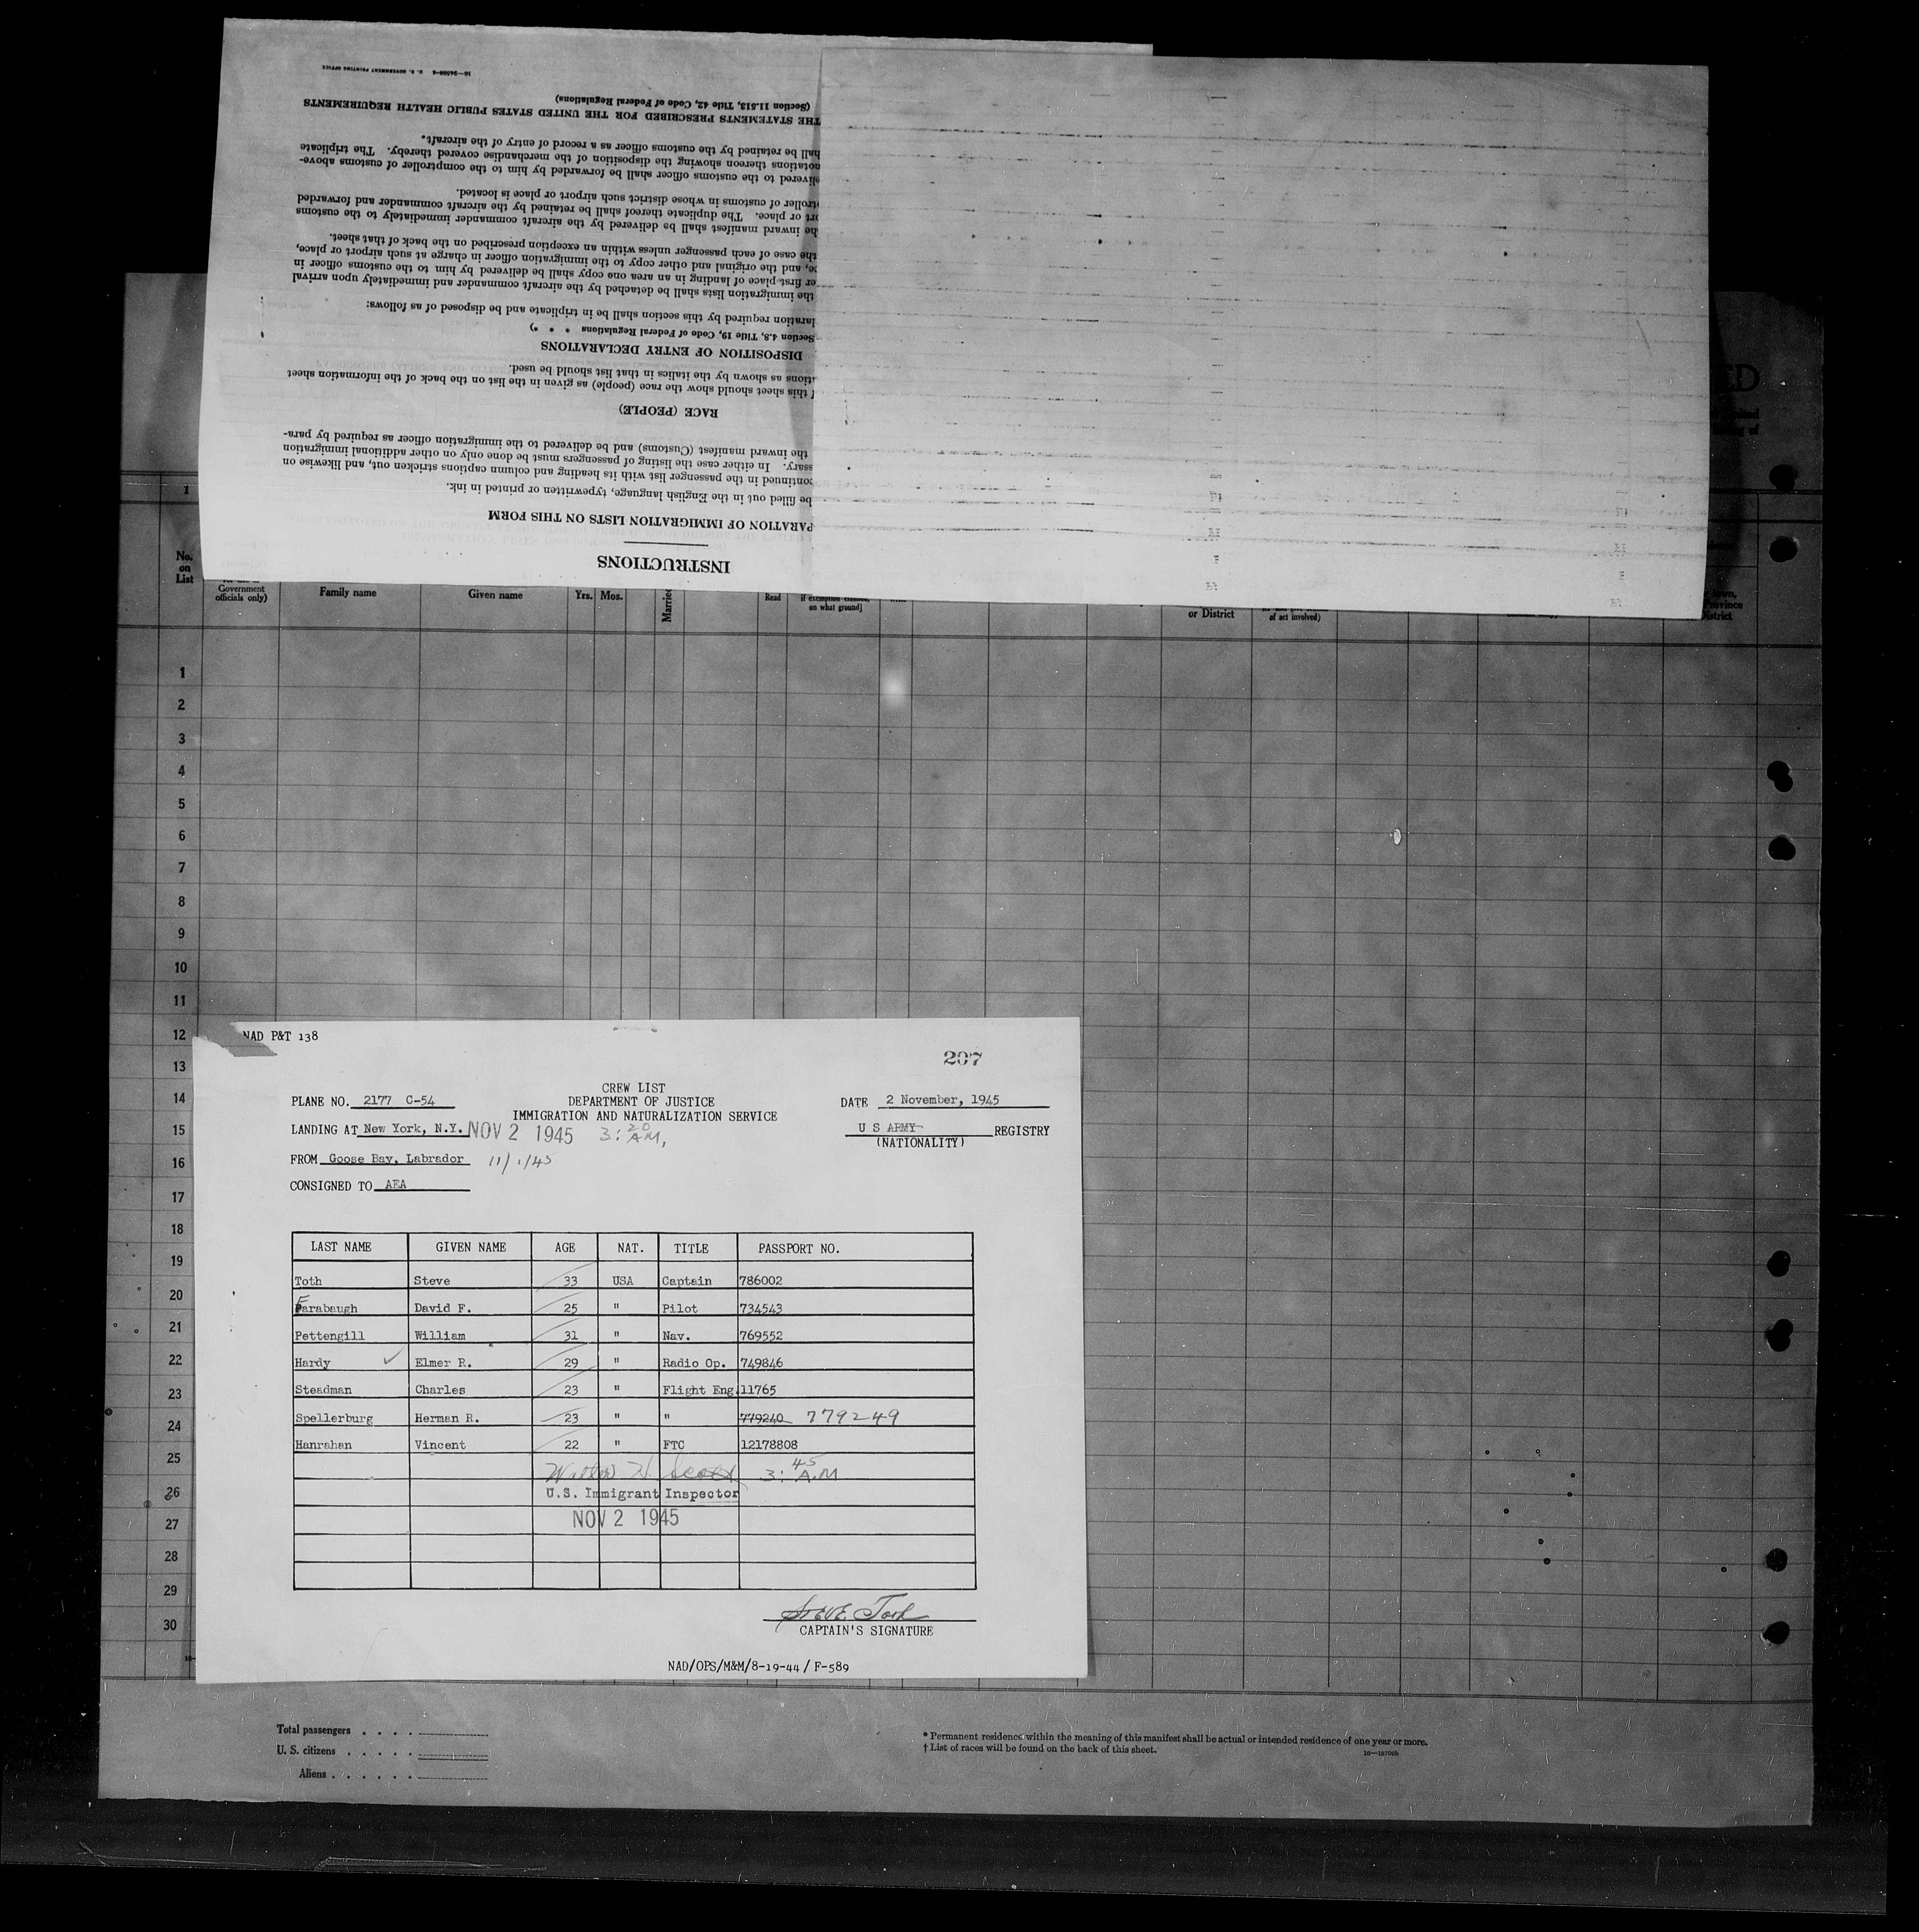 16—24588-4 U. S. GOVERNMENT PRINTING OFFICE
(Section 11.513, Title 42, Code of Federal Regulations)
THE STATEMENTS PRESCRIBED FOR THE UNITED STATES PUBLIC HEALTH REQUIREMENTS
hall be retained by the customs officer as a record of entry of the aircraft.
notations thereon showing the disposition of the merchandise covered thereby. The triplicate
livered to the customs officer shall be forwarded by him to the comptroller of customs above-
troller of customs in whose district such airport or place is located.
rt or place. The duplicate thereof shall be retained by the aircraft commander and forwarded
he inward manifest shall be delivered by the aircraft commander immediately to the customs
the case of each passenger unless within an exception prescribed on the back of that sheet.
ce, and the original and other copy to the immigration officer in charge at such airport or place,
er first place of landing in an area one copy shall be delivered by him to the customs officer in
the immigration lists shall be detached by the aircraft commander and immediately upon arrival
laration required by this section shall be in triplicate and be disposed of as follows:
Section 4.8, Title 19, Code of Federal Regulations * * *)
DISPOSITION OF ENTRY DECLARATIONS
tions as shown by the italics in that list should be used.
f this sheet should show the race (people) as given in the list on the back of the information sheet
RACE (PEOPLE)
the inward manifest (Customs) and be delivered to the immigration officer as required by para-
ssary. In either case the listing of passengers must be done only on other additional immigration
continued in the passenger list with its heading and column captions stricken out, and likewise on
be filled out in the English language, typewritten or printed in ink.
PARATION OF IMMIGRATION LISTS ON THIS FORM
INSTRUCTIONS
ED
1
No. on List
Government officials only)
Family name
Given name
Yrs.
Mos.
Married
Read
if exemption claimed, on what ground]
or District
of act involved)
town, Province District
1
2
3
4
5
6
7
8
9
10
11
12
13
14
15
16
17
18
19
20
21
22
23
24
25
26
27
28
29
30
NAD P&T 138
207
CREW LIST
PLANE NO. 2177 C-54 DEPARTMENT OF JUSTICE DATE 2 November, 1945
IMMIGRATION AND NATURALIZATION SERVICE
LANDING AT New York, N.Y. NOV 2 1945 3:20 AM, U S ARMY REGISTRY
(NATIONALITY)
FROM Goose Bay, Labrador 11/1/45
CONSIGNED TO AEA
LAST NAME GIVEN NAME AGE NAT. TITLE PASSPORT NO.
Toth Steve 33 USA Captain 786002
Farabaugh David F. 25 " Pilot 734543
Pettengill William 31 " Nav. 769552
Hardy Elmer R. 29 " Radio Op. 749846
Steadman Charles 23 " Flight Eng. 11765
Spellerburg Herman R. 23 " " 779240 779249
Hanrahan Vincent 22 " FTC 12178808
Walter H. Scott 3:45 A.M
U.S. Immigrant Inspector
NOV 2 1945
Steve Toth
CAPTAIN'S SIGNATURE
NAD/OPS/M&M/8-19-44/F-589
Total passengers . . . .
U. S. citizens . . . . .
Aliens . . . . . .
* Permanent residence within the meaning of this manifest shall be actual or intended residence of one year or more.
† List of races will be found on the back of this sheet.